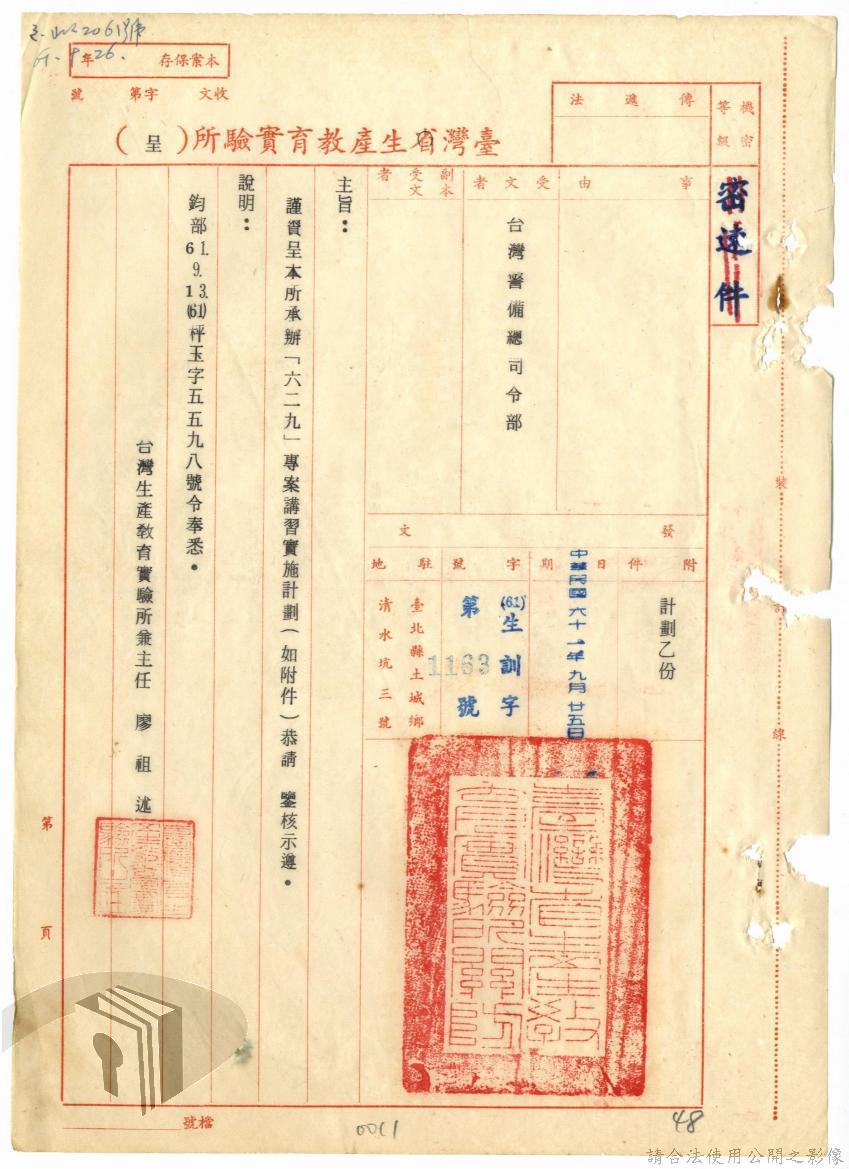 2061號
61.9.26.
本案保存 年
收文 字第 號
臺灣省生產教育實驗所（呈）
機密等級
密速件
傳遞法
事由
受文者
台灣警備總司令部
副本受文者
發文
附件
計劃乙份
日期
中華民國六十一年九月廿五日
字號
(61)生訓字
第1163號
駐地
臺北縣土城鄉
清水坑三號
主旨：
謹賷呈本所承辦「六二九」專案講習實施計劃（如附件）恭請 鑒核示遵。
說明：
鈞部61.9.13.(61)枰玉字五五九八號令奉悉。
台灣生產教育實驗所兼主任 廖祖述
臺灣省生產教
育實驗所關防
裝
訂
線
第 頁
檔號
0011
48
請合法使用公開之影像